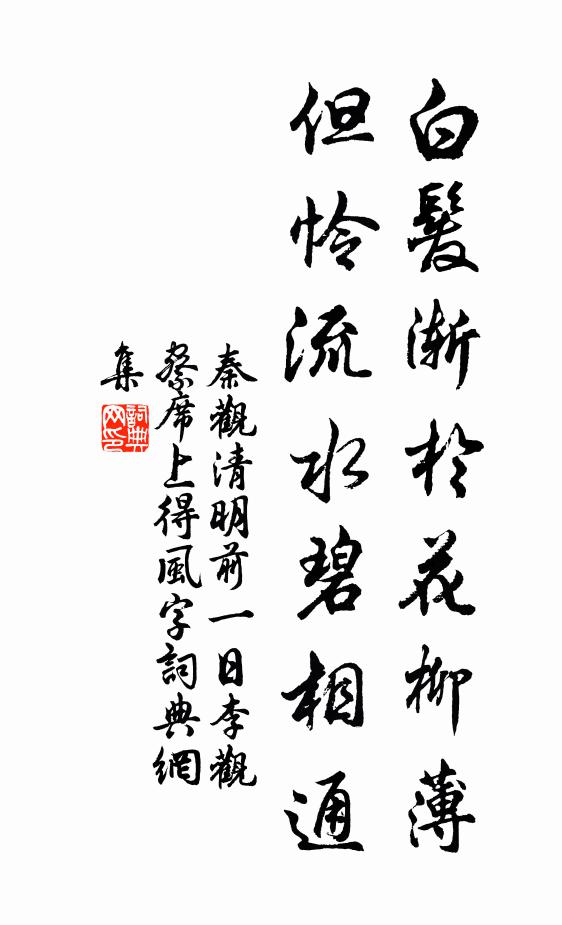 白髮漸於花柳薄
但怜流水碧相通
秦觀清明前一日李觀
察席上得風字詞典網
集
詞典网印